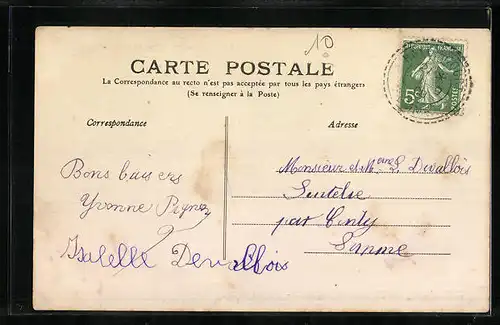 10
CARTE POSTALE
La Correspondance au recto n'est pas acceptée par tous les pays étrangers
(Se renseigner à la Poste)
Correspondance
Adresse
5c
POSTES
Bons baisers
Yvonne
Isabelle Devallois
Monsieur et Mme L Devallois
par
Somme